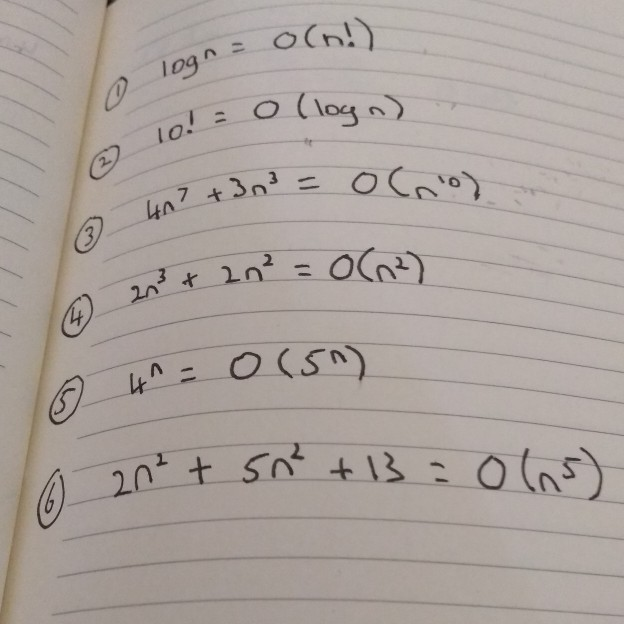 ① log n = O(n!)
② 10! = O(log n)
③ 4n⁷ + 3n³ = O(n¹⁰)
④ 2n³ + 2n² = O(n²)
⑤ 4ⁿ = O(5ⁿ)
⑥ 2n² + 5n² + 13 = O(n⁵)